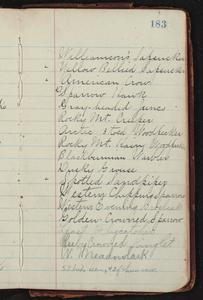 183
Williamson's Sapsucker
Yellow Bellied Sapsucker
American Crow
Sparrow Hawk
Gray-headed Junco
Rocky Mt. Creeper
Arctic 3 toed Woodpecker
Rocky Mt. Hairy Woodpecker
Blackburnian Warbler
Dusky Grouse
Spotted Sandpiper
Western Chipping Sparrow
Western Evening Grosbeak
Golden Crowned Sparrow
Flycatcher
Ruby Crowned Kinglet
W. Meadowlark
52 birds seen